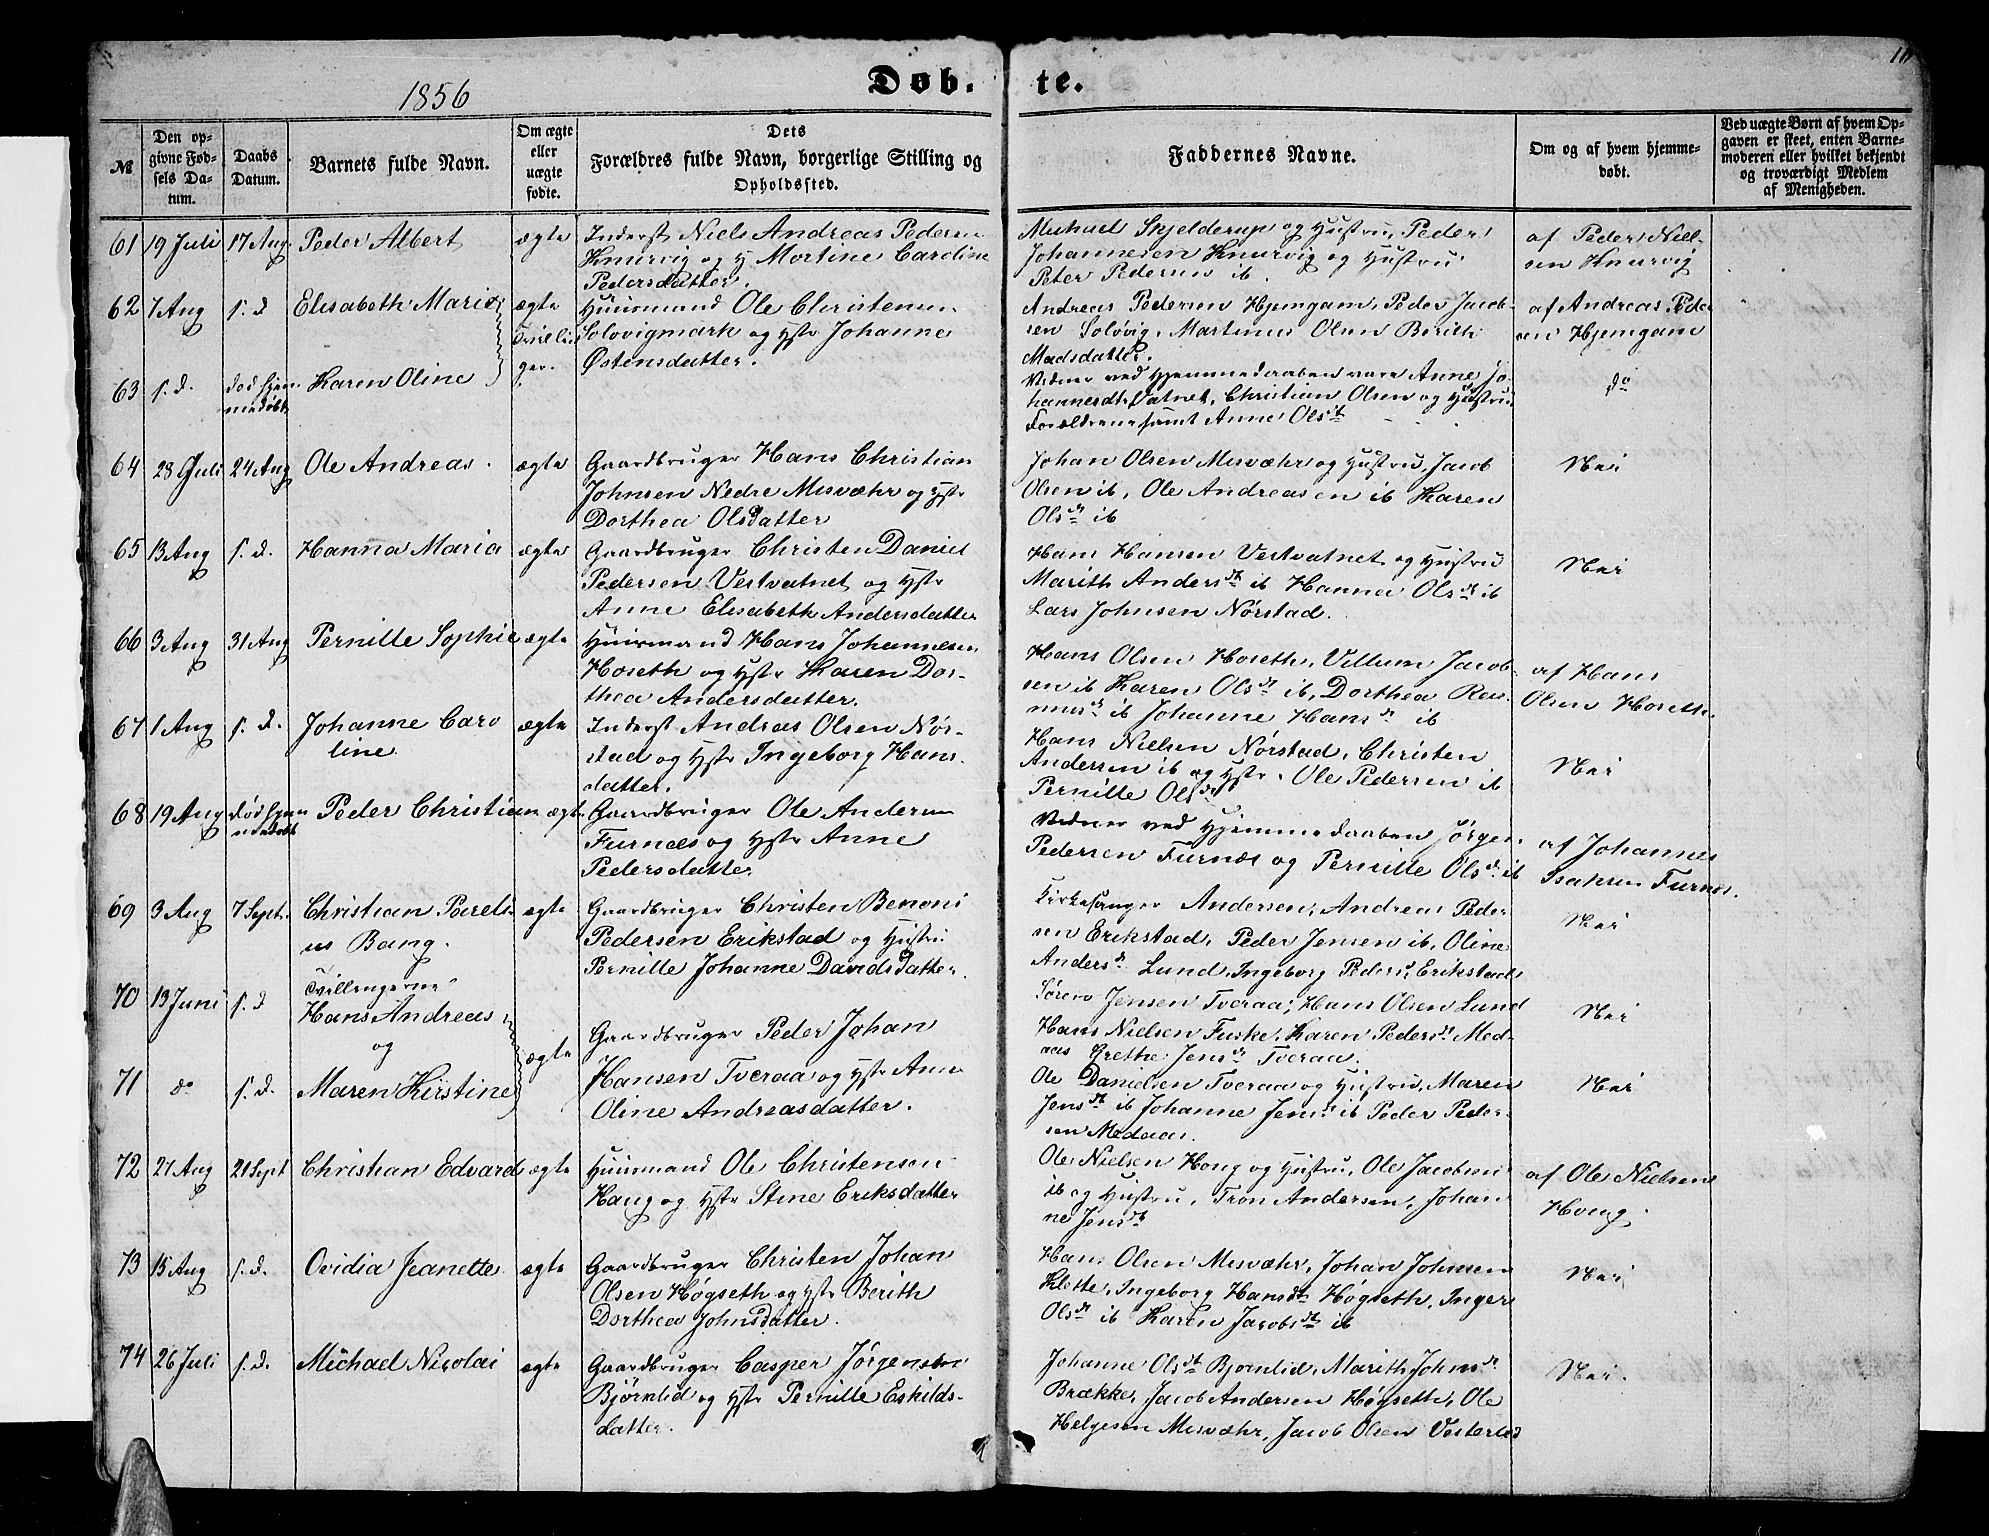 10
1856
Døb-
te.
№
Den op-
givne Fød-
sels Da-
tum.
Daabs
Datum.
Barnets fulde Navn.
Om ægte
eller
uægte
fødte.
Dets
Forældres fulde Navn, borgerlige Stilling og
Opholdssted.
Faddernes Navne.
Om og af hvem hjemme-
døbt.
Ved uægte Børn af hvem Op-
gaven er skeet, enten Barne-
moderen eller hvilket bekjendt
og troværdigt Medlem
af Menigheden.
61 19 Juli 17 Aug. Peder Albert ægte
Inderst Niels Andreas Pedersen
Knurvig og H Martine Caroline
Pedersdatter.
Michael Skjelderup og Hustru, Peder
Johannesen Knurvig og Hustru
Peter Pedersen ib
af Peder Niel-
sen Knurvig
62 1 Aug s. d Elisabeth Maria ægte
Tvillin-
ger.
Huusmand Ole Christensen
Solovigmark og Hstr Johanne
Østensdatter.
Andreas Pedersen Hjemgam, Peder Jacob-
sen Solovig, Martinus Olsen Berith
Madsdatter.
af Andreas Peder
sen Hjemgam
63 s. d. død hjem-
medøbt Karen Oline
Vidner ved Hjemmedaaben vare Anne Jo-
hannesdt. Vatnet, Christian Olsen og Hustru
Forældrene samt Anne Olsdt
do
64 28 Juli 24 Aug Ole Andreas. ægte
Gaardbruger Hans Christian
Johnsen Nedre Misvæhr og Hstr
Dorthea Olsdatter
Johan Olsen Misvæhr og Hustru, Jacob
Olsen ib, Ole Andreasen ib Karen
Olsdt ib
Nei
65 13 Aug s. d. Hanna Maria ægte
Gaardbruger Christen Daniel
Pedersen Vestvatnet og Hstr
Anne Elisabeth Andersdatter
Hans Hansen Vestvatnet og Hustru
Marith Andersdt ib Hanna Olsdt ib
Lars Johnsen Nørstad.
Nei
66 3 Aug 31 Aug Pernille Sophie ægte
Huusmand Hans Johannesen
Hoseth og Hstr Karen Dor-
thea Andersdatter.
Hans Olsen Hoseth, Villum Jacob-
sen ib Karen Olsdt ib, Dorthea Ras-
musdt ib Johanne Hansdt ib
af Hans
Olsen Hoseth.
67 1 Aug s. d. Johanne Caro
line ægte
Inderst Andreas Olsen Nør-
stad og Hstr Ingeborg Hans-
datter.
Hans Nielsen Nørstad, Christen
Andersen ib og Hstr. Ole Pedersen ib
Pernille Olsdt
Nei
68 19 Aug død hjem
medøbt Peder Christian ægte
Gaardbruger Ole Andersen
Furnæs og Hstr Anne
Pedersdatter.
Vidner ved Hjemmedaaben Jørgen
Pedersen Furnæs og Pernille Olsdt ib
af Johannes
Isaksen Furnæs.
69 3 Aug 7 Sept. Christian Pareli-
us Bang. ægte
Gaardbruger Christen Benoni
Pedersen Erikstad og Hustru
Pernille Johanne Davidsdatter.
Kirkesanger Andersen, Andreas Peder
sen Erikstad, Peder Jensen ib, Oline
Andersdt Lund, Ingeborg Pedersd. Erikstad
Nei
70 13 Juni s. d Tvillingerne
Hans Andreas
og
ægte
Gaardbruger Peder Johan
Hansen Tveraa og Hstr Ane
Oline Andreasdatter.
Søren Jensen Tveraa, Hans Olsen Lund
Hans Nielsen Fuske, Karen Pedersdt Med-
aas Grethe Jensdt Tveraa.
Nei
71 do s. d. Maren Kirstine
Ole Danielsen Tveraa og Hustru, Maren
Jensdt ib Johanne Jensdt ib Peder Peder-
sen Medaas.
Nei
72 27 Aug 21 Sept Christian Edvard ægte
Huusmand Ole Christensen
Haug og Hstr Stine Eriksdatter
Ole Nielsen Houg og Hustru, Ole Jacobsen
ib og Hustru, Tron Andersen, Johan
ne Jensdt
af Ole Nielsen
Houg.
73 15 Aug s. d. Ovidia Jeanette ægte
Gaardbruger Christen Johan
Olsen Høgseth og Hstr Berith
Dorthea Johnsdatter.
Hans Olsen Misvæhr, Johan Johnsen
Klette, Ingeborg Hansdt Høgseth, Inger
Olsdt ib Karen Jacobsdt ib
Nei
74 26 Juli s. d. Michael Nicolai ægte
Gaardbruger Casper Jørgensen
Bjørnlid og Hstr Pernille Eskilds-
datter.
Johanne Olsdt Bjørnlid, Marith Johnsdt
Brække, Jacob Andersen Høgseth, Ole
Helgesen Misvæhr, Jacob Olsen Vesterlid
Nei.